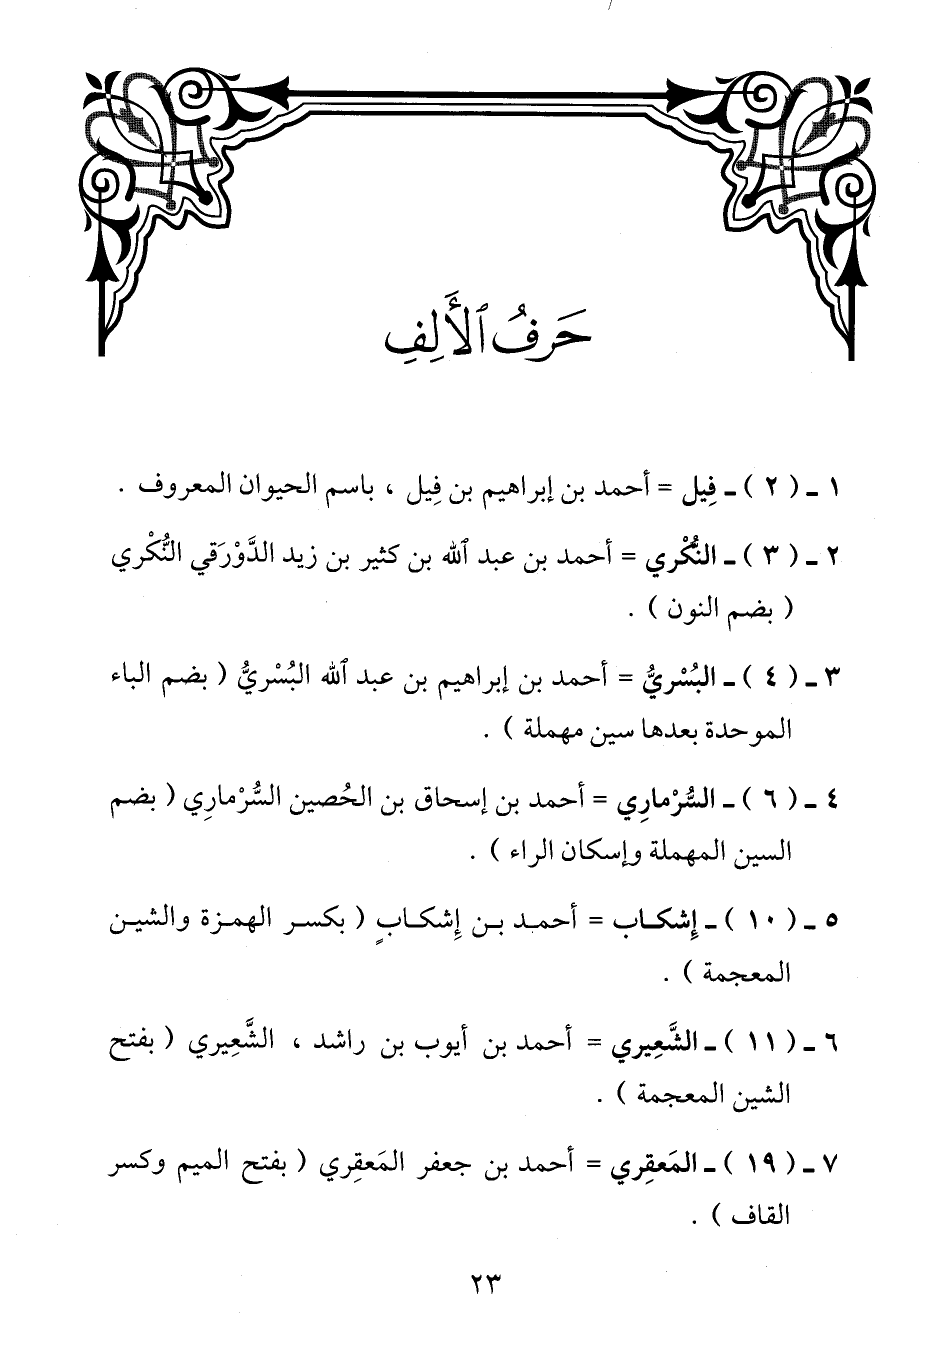 حَرفُ ٱلأَلِفِ
١ ـ ( ٢ ) ـ فِيل = أحمد بن إبراهيم بن فِيل ، باسم الحيوان المعروف .
٢ ـ ( ٣ ) ـ النُّكْري = أحمد بن عبد ٱلله بن كثير بن زيد الدَّوْرَقي النُّكْري
( بضم النون ) .
٣ ـ ( ٤ ) ـ البُسْريُّ = أحمد بن إبراهيم بن عبد ٱلله البُسْريُّ ( بضم الباء
الموحدة بعدها سين مهملة ) .
٤ ـ ( ٦ ) ـ السُّرْمارِي = أحمد بن إسحاق بن الحُصين السُّرْمارِي ( بضم
السين المهملة وإسكان الراء ) .
٥ ـ ( ١٠ ) ـ إِشكاب = أحمد بن إِشكابٍ ( بكسر الهمزة والشين
المعجمة ) .
٦ ـ ( ١١ ) ـ الشَّعِيري = أحمد بن أيوب بن راشد ، الشَّعِيري ( بفتح
الشين المعجمة ) .
٧ ـ ( ١٩ ) ـ المَعقِري = أحمد بن جعفر المَعقِري ( بفتح الميم وكسر
القاف ) .
٢٣